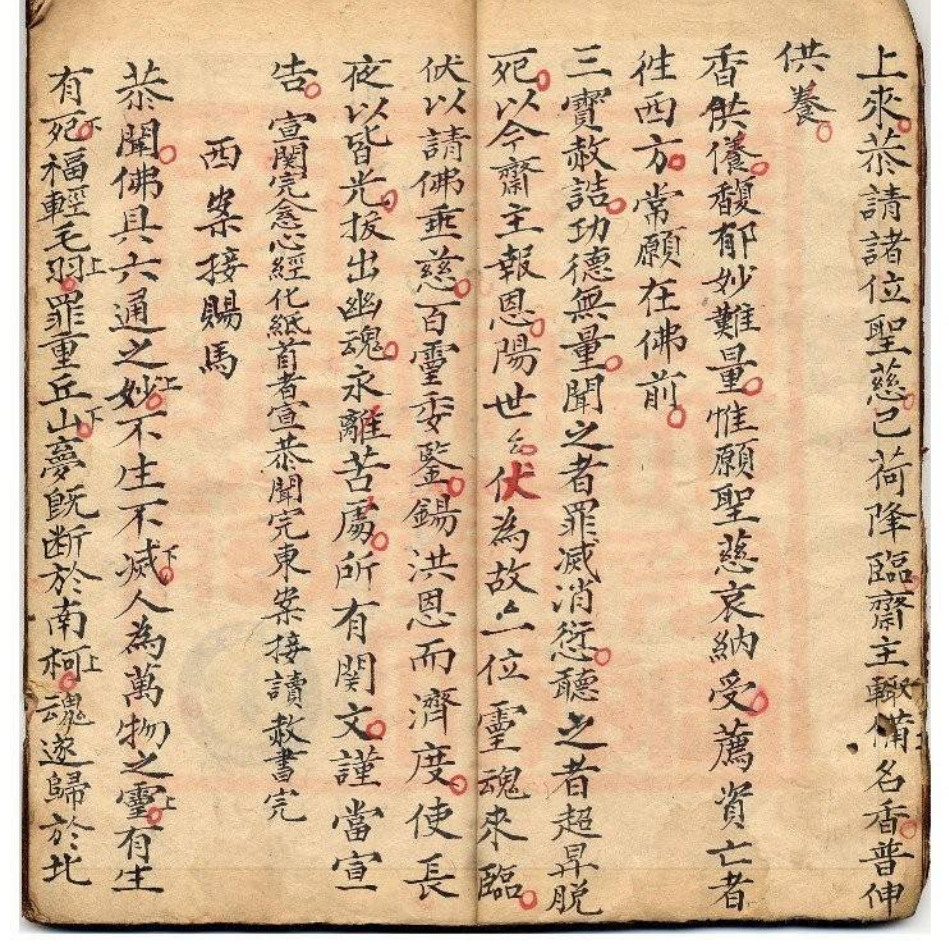 上來恭請諸位聖慈已荷降臨齋主輙備名香普伸
供養
香供養馥郁妙難量惟願聖慈哀納受薦資亡者
徃西方常願在佛前
三寳赦誥功德無量聞之者罪滅消愆聽之者超昇脱
死以今齋主報恩陽世厶伏為故亡一位靈魂來臨
伏以請佛垂慈百靈委鑒錫洪恩而濟度使長
夜以皆光拔出幽魂永離苦處所有関文謹當宣
告 宣関完念心經化紙首者宣恭聞完東案接讀赦書完
西案接賜馬
恭聞佛具六通之妙上不生不滅下人為萬物之靈上有生
有死下福輕毛羽上罪重丘山下夢既断於南柯上魂遂歸於北